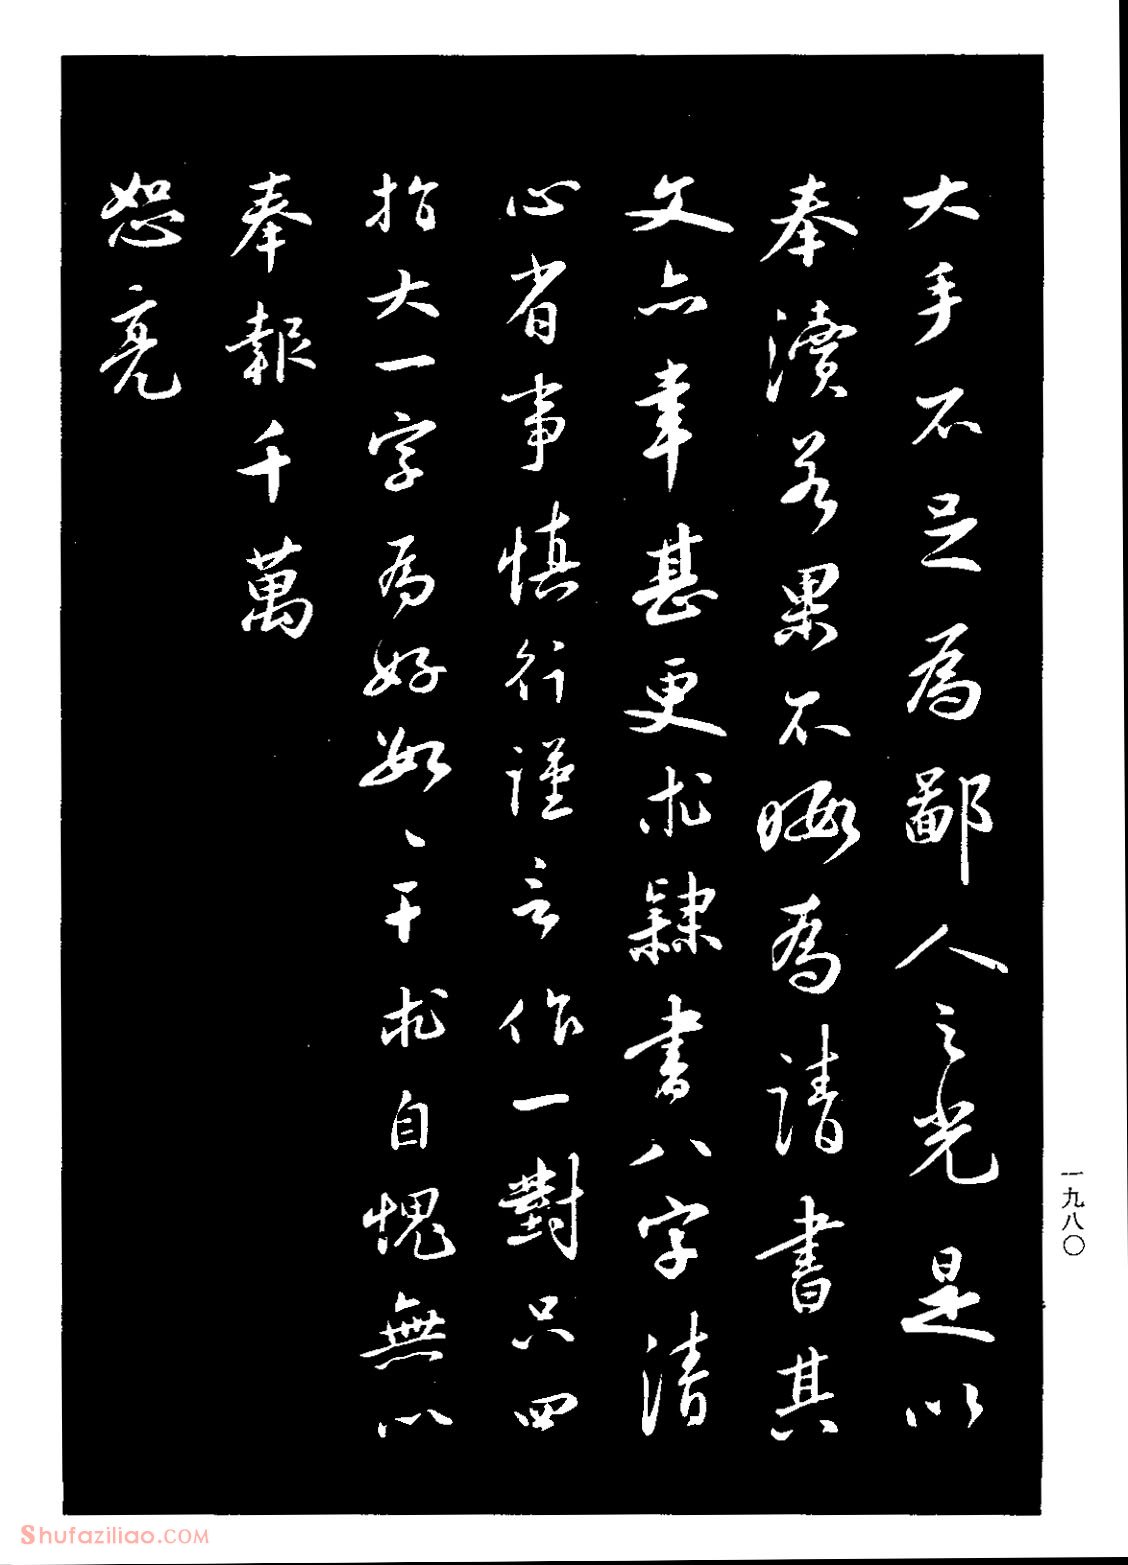 大手不足為鄙人之光是以
奉瀆若果不暇為請書其
文亦幸甚更求隸書八字清
心省事慎行謹言作一對只四
指大一字為好如〻干求自愧無以
奉報千萬
恕亮
一九八〇
Shufaziliao.COM